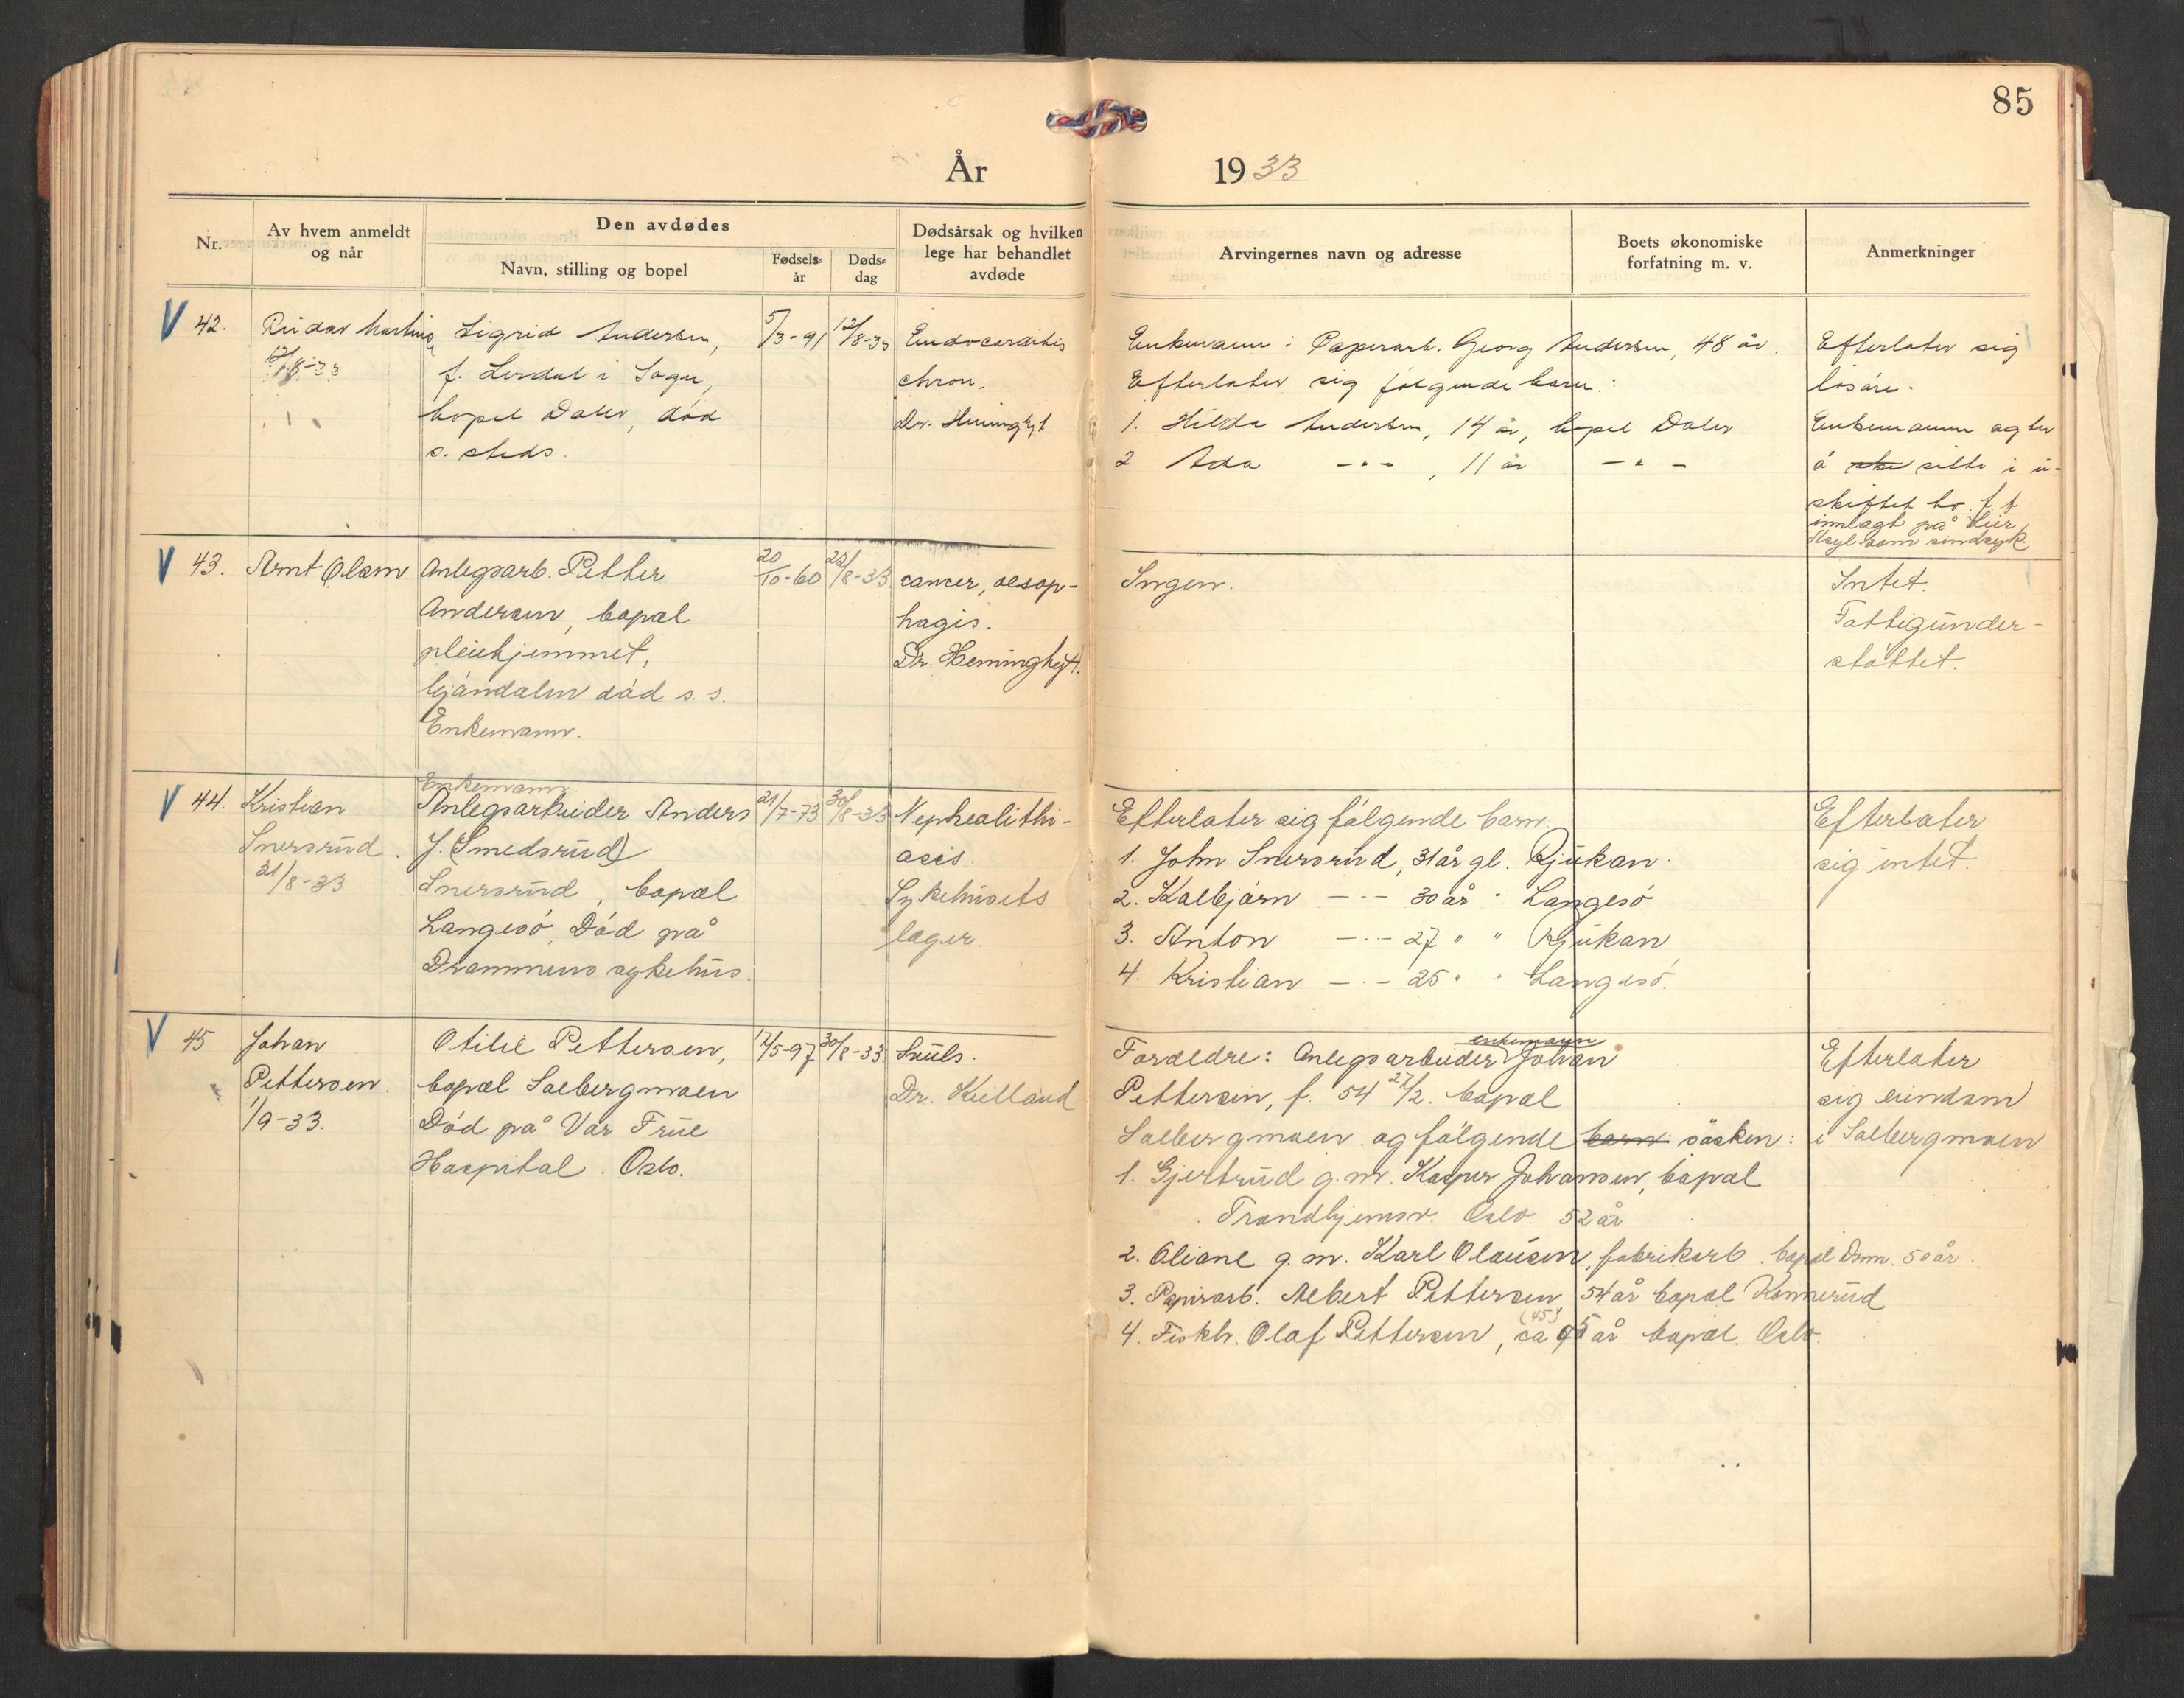 85
År 1933
Nr.
Av hvem anmeldt
og når
Den avdødes
Navn, stilling og bopel
Fødsels-
år
Døds-
dag
Dødsårsak og hvilken
lege har behandlet
avdøde
Arvingernes navn og adresse
Boets økonomiske
forfatning m. v.
Anmerkninger
V 42.
12/8-33
Sigrid Andersen,
f. Lerdal i Sogn,
bopel Daler, død
s. steds.
5/3-91
12/8-33
Endocarditis
chron.
Dr. Heminghyt
Enkemann: Paperarb. Georg Andersen, 48 år.
Efterlater sig følgende barn:
1. Hilda Andersen, 14 år, bopel Daler
2 Ada -"- , 11 år -"-
Efterlater sig
løsøre.
Enkemann agter
å sitte i u-
skiftet bo. f. t
innlagt på Lier
Asyl som sindsyk
V 43.
Arnt Olsen
Anlegsarb. Petter
Andersen, bopæl
pleiehjemmet,
Mjøndalen død s. s.
Enkemann.
20/10-60
22/8-33
cancer, oesop-
hagis.
Dr. Heminghyt.
Ingen.
Intet.
Fattigunder-
støttet.
V 44.
Kristian
Snersrud.
31/8-33
Enkemann
Anlegsarbeider Anders
J. (Smedsrud)
Snersrud, bopæl
Langesø, Død på
Drammens sykehus.
21/7-73
30/8-33
Nephealithi-
asis.
Sykehusets
læger.
Efterlater sig følgende barn.
1. John Snersrud, 31 år gl. Rjukan.
2. Kalbjørn -"- 30 år " Langesø
3. Anton -"- 27 " " Rjukan
4. Kristian -"- 25 " " Langesø.
Efterlater
sig intet.
V 45
Johan
Pettersen.
1/9-33.
Otilie Pettersen,
bopæl Solbergmoen
Død på Vår Frue
Hospital. Oslo.
17/5-97
30/8-33
Dr. Kielland
enkemann
Foreldre: Anlegsarbeider Johan
Pettersen, f. 54 27/2. bopæl
Solbergmoen og følgende barn søsken:
1. Gjertrud g.m. Kasper Johansen, bopæl
Trondhjemsv. Oslo. 52 år
2. Oliane g.m. Karl Olausen, fabrikarb. bopæl Dmn. 50 år.
3. Papirarb. Albert Pettersen 54 år bopæl Konnerud
(45)
4. Fiskh. Olaf Pettersen, ca 45 år bopæl. Oslo.
Efterlater
sig eiendom
i Solbergmoen